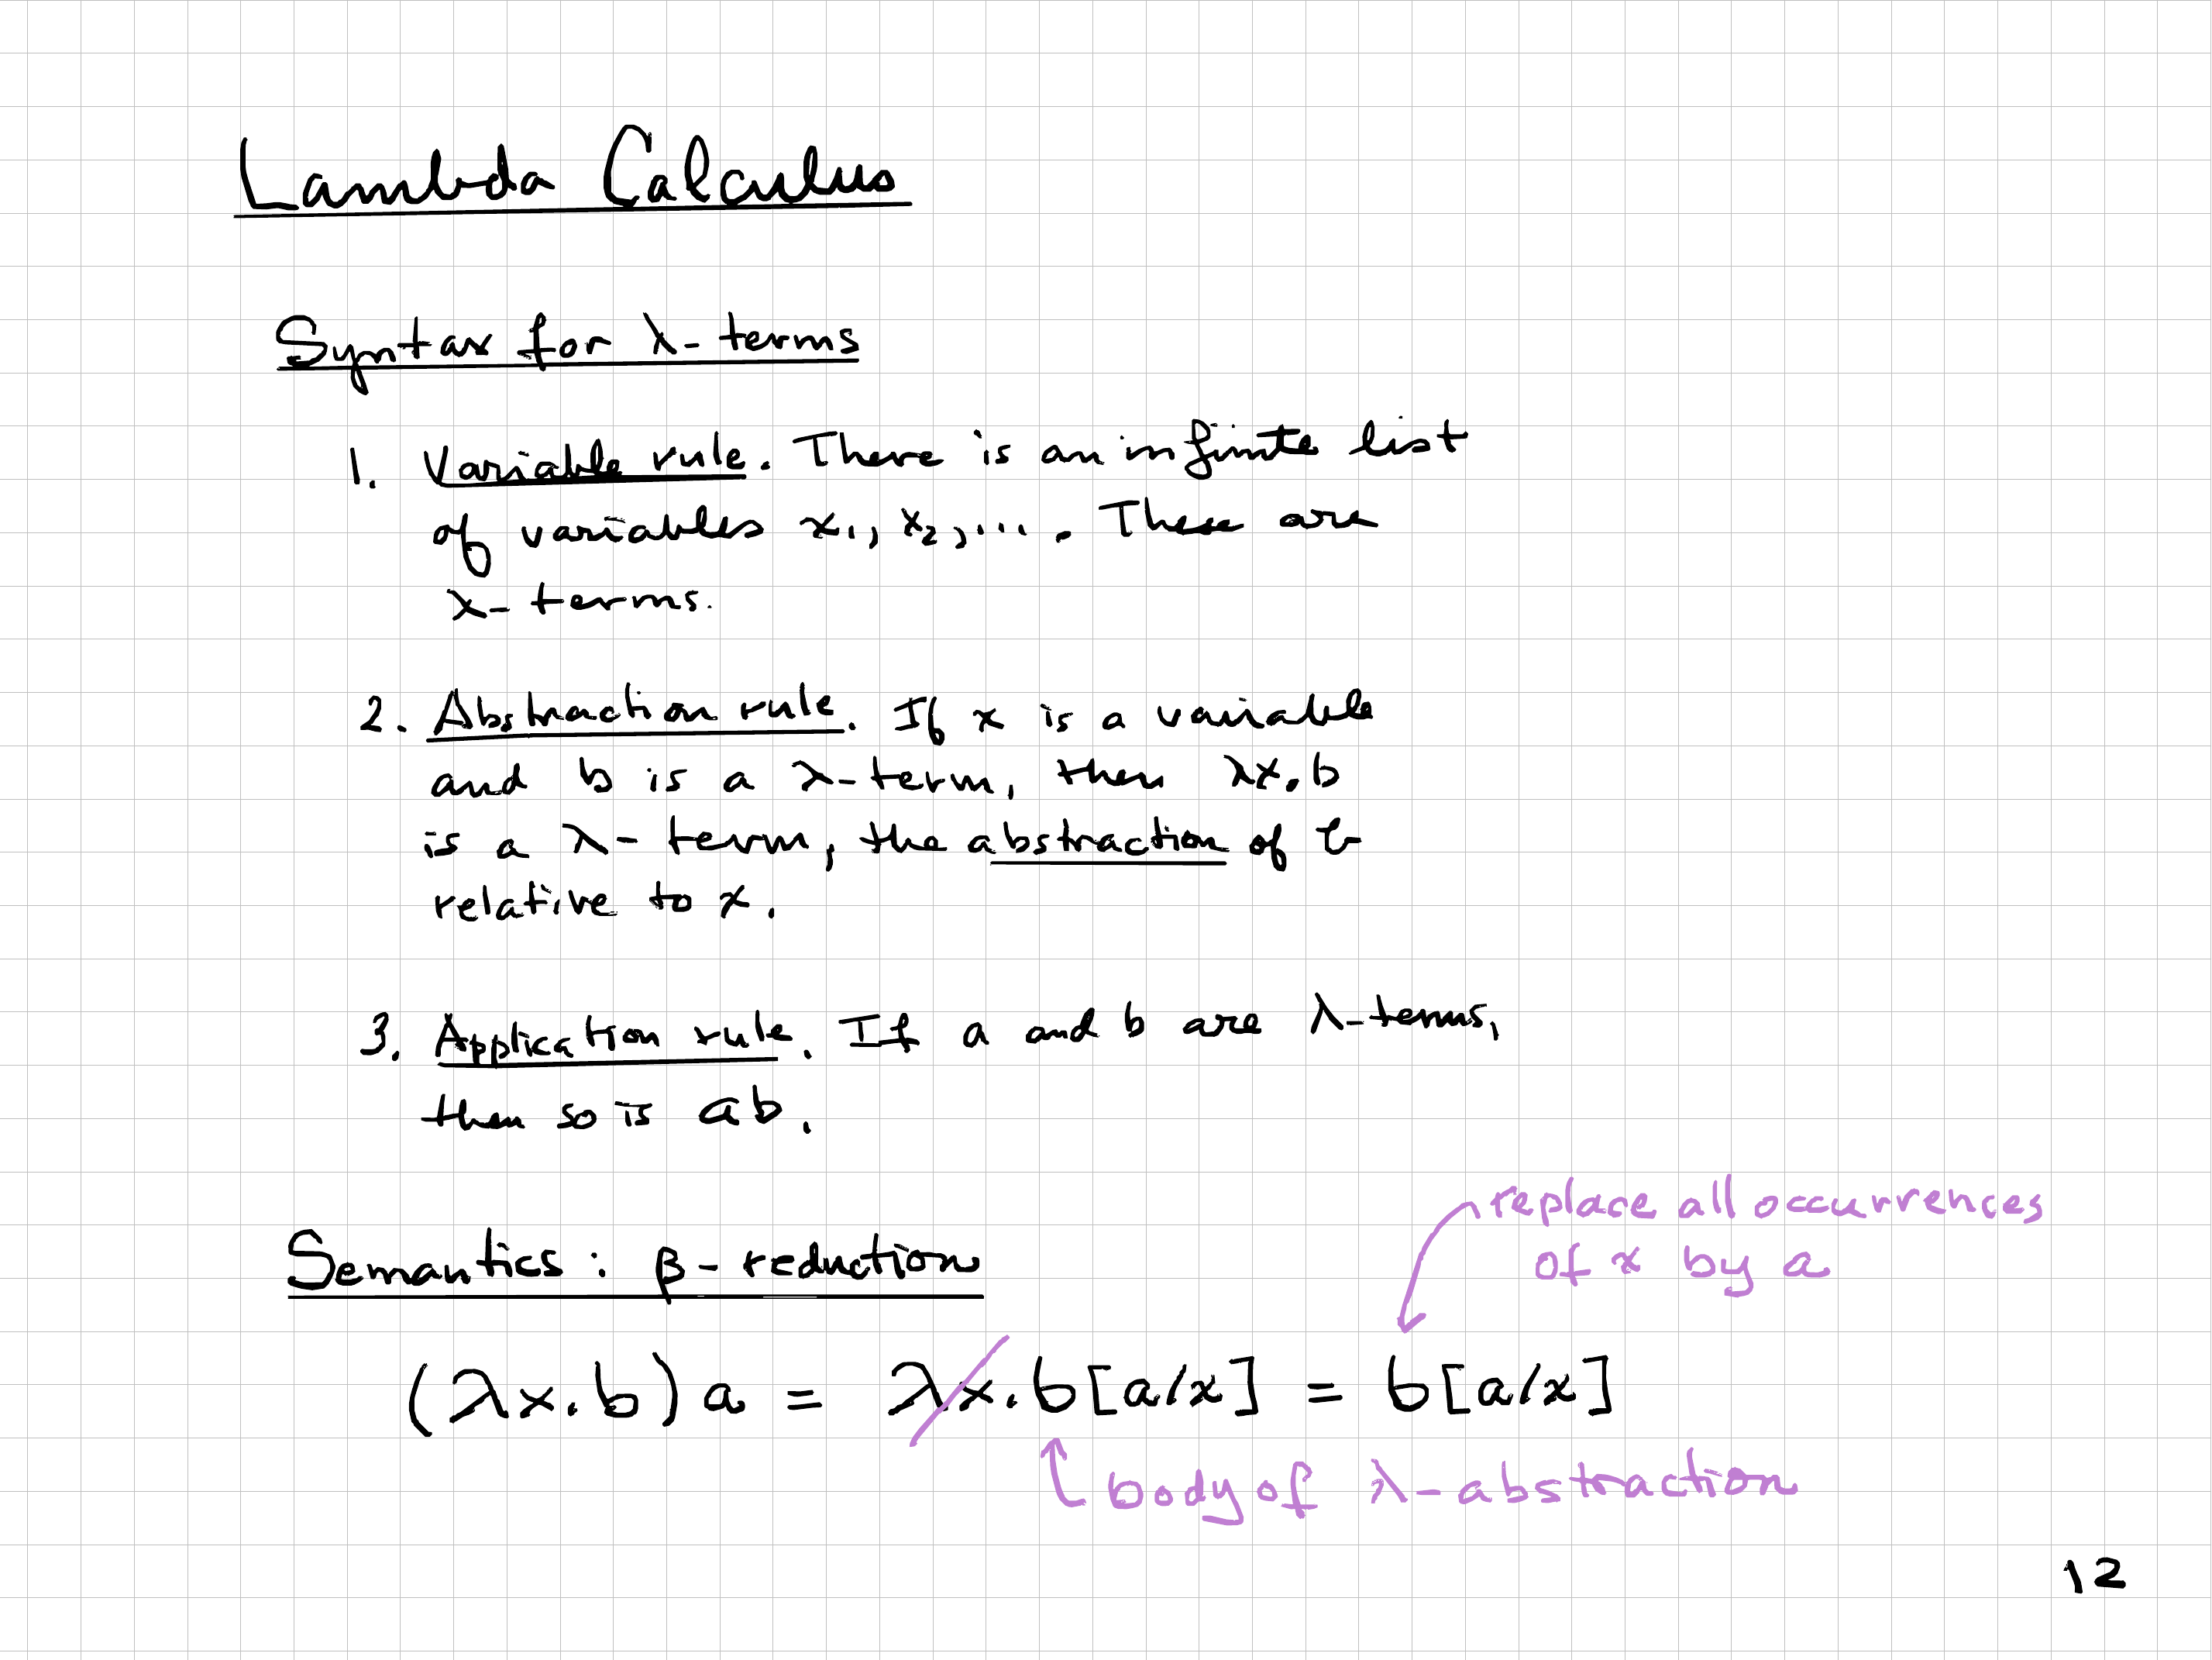 Lambda Calculus
Syntax for λ-terms
1. Variable rule. There is an infinite list
of variables x₁, x₂, ... . These are
λ-terms.
2. Abstraction rule. If x is a variable
and b is a λ-term, then λx.b
is a λ-term, the abstraction of b
relative to x.
3. Application rule. If a and b are λ-terms,
then so is ab.
replace all occurrences
of x by a
Semantics: β-reduction
(λx.b)a = λx.b[a/x] = b[a/x]
body of λ-abstraction
12